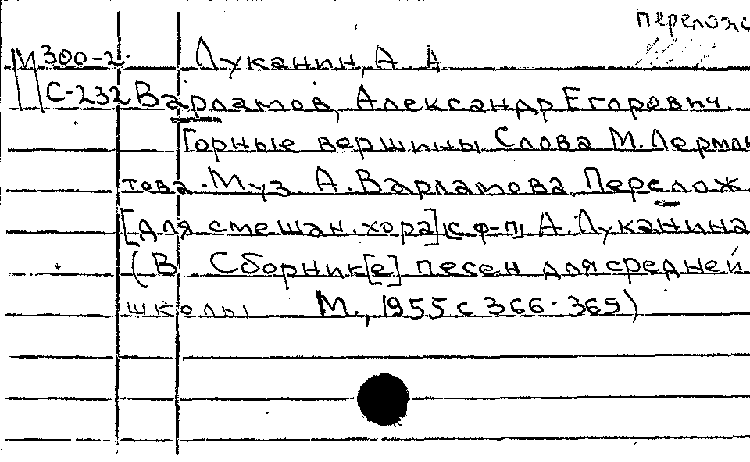 перелож
М 300-2 Луканин, А. А
С-232 Варламов, Александр Егорович
Горные вершины. Слова М. Лермон
това. Муз. А. Варламова. Перелож
[для смешан. хора] с ф-п А. Луканина
(В Сборник[е] песен для средней
школы М., 1955 с 366-369)